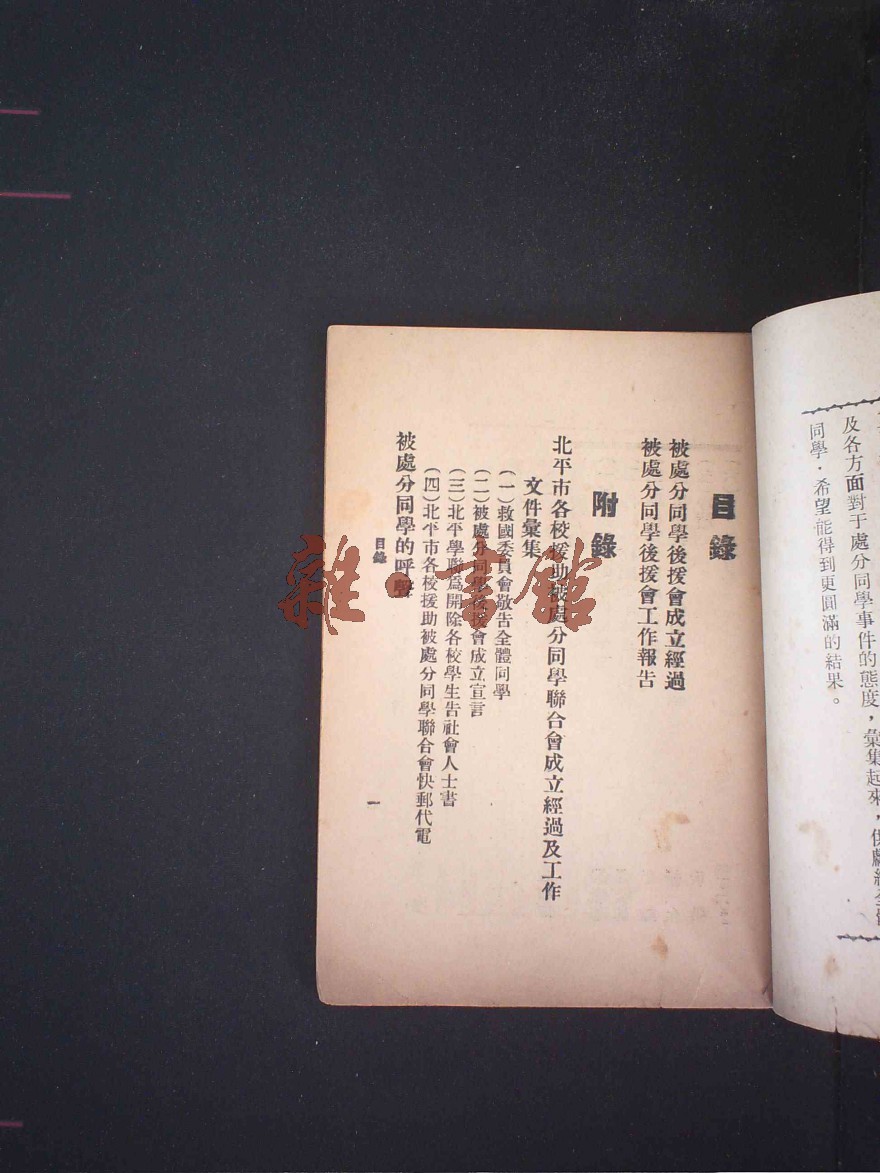 及各方面對于處分同學事件的態度，彙集起來，
同學，希望能得到更圓滿的結果。
目錄
被處分同學後援會成立經過
被處分同學後援會工作報告
附錄
北平市各校援助被處分同學聯合會成立經過及工作
文件彙集
（一）救國委員會敬告全體同學
（二）被處分同學後援會成立宣言
（三）北平學聯爲開除各校學生告社會人士書
（四）北平市各校援助被處分同學聯合會快郵代電
被處分同學的呼聲
目錄
一
雜·書舘